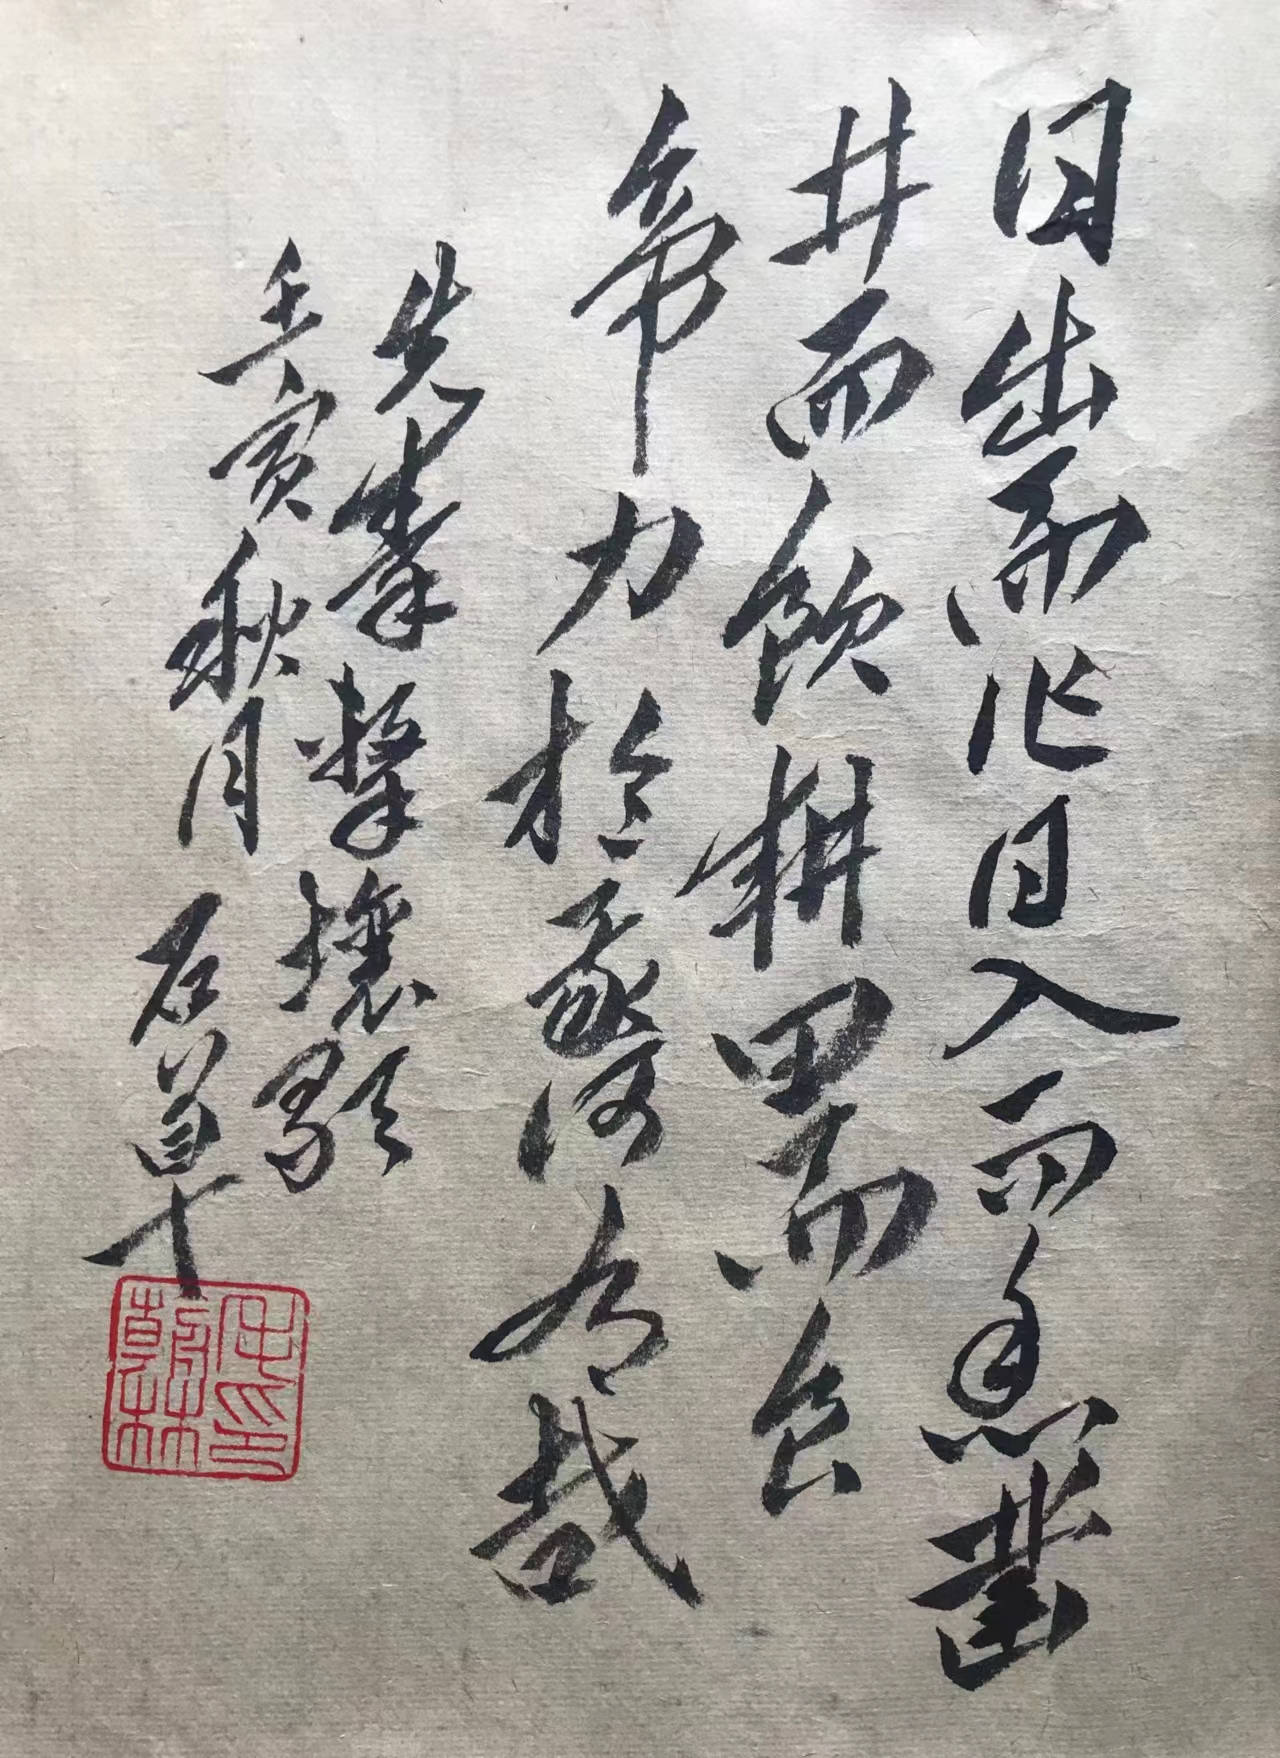 日出而作日入而息凿
井而飲耕田而食
帝力於我何有哉
先秦擊壤歌
壬寅秋月 石道